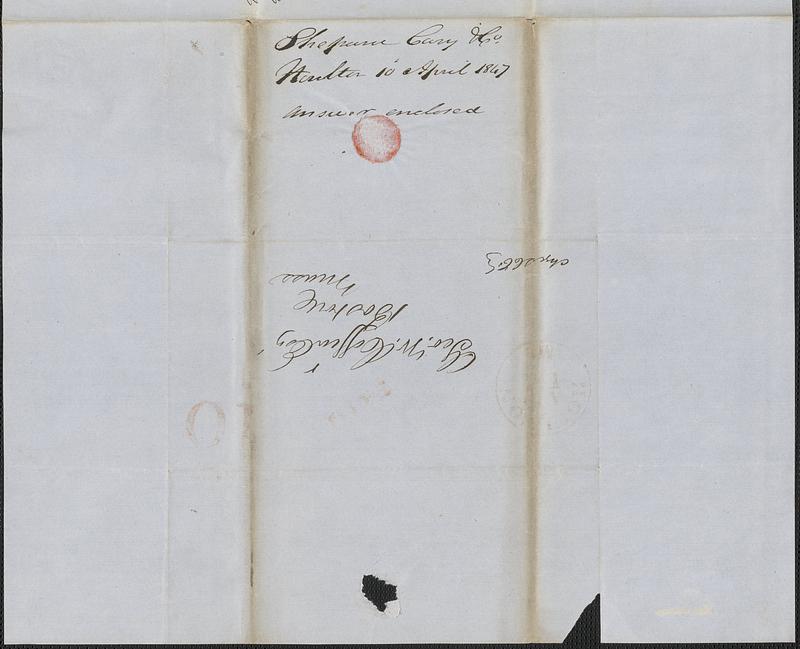 Shepard Cary & Co.
Houlton 10 April 1847
answer enclosed
Geo. W. Coffin Esq
Boston
Mass
10